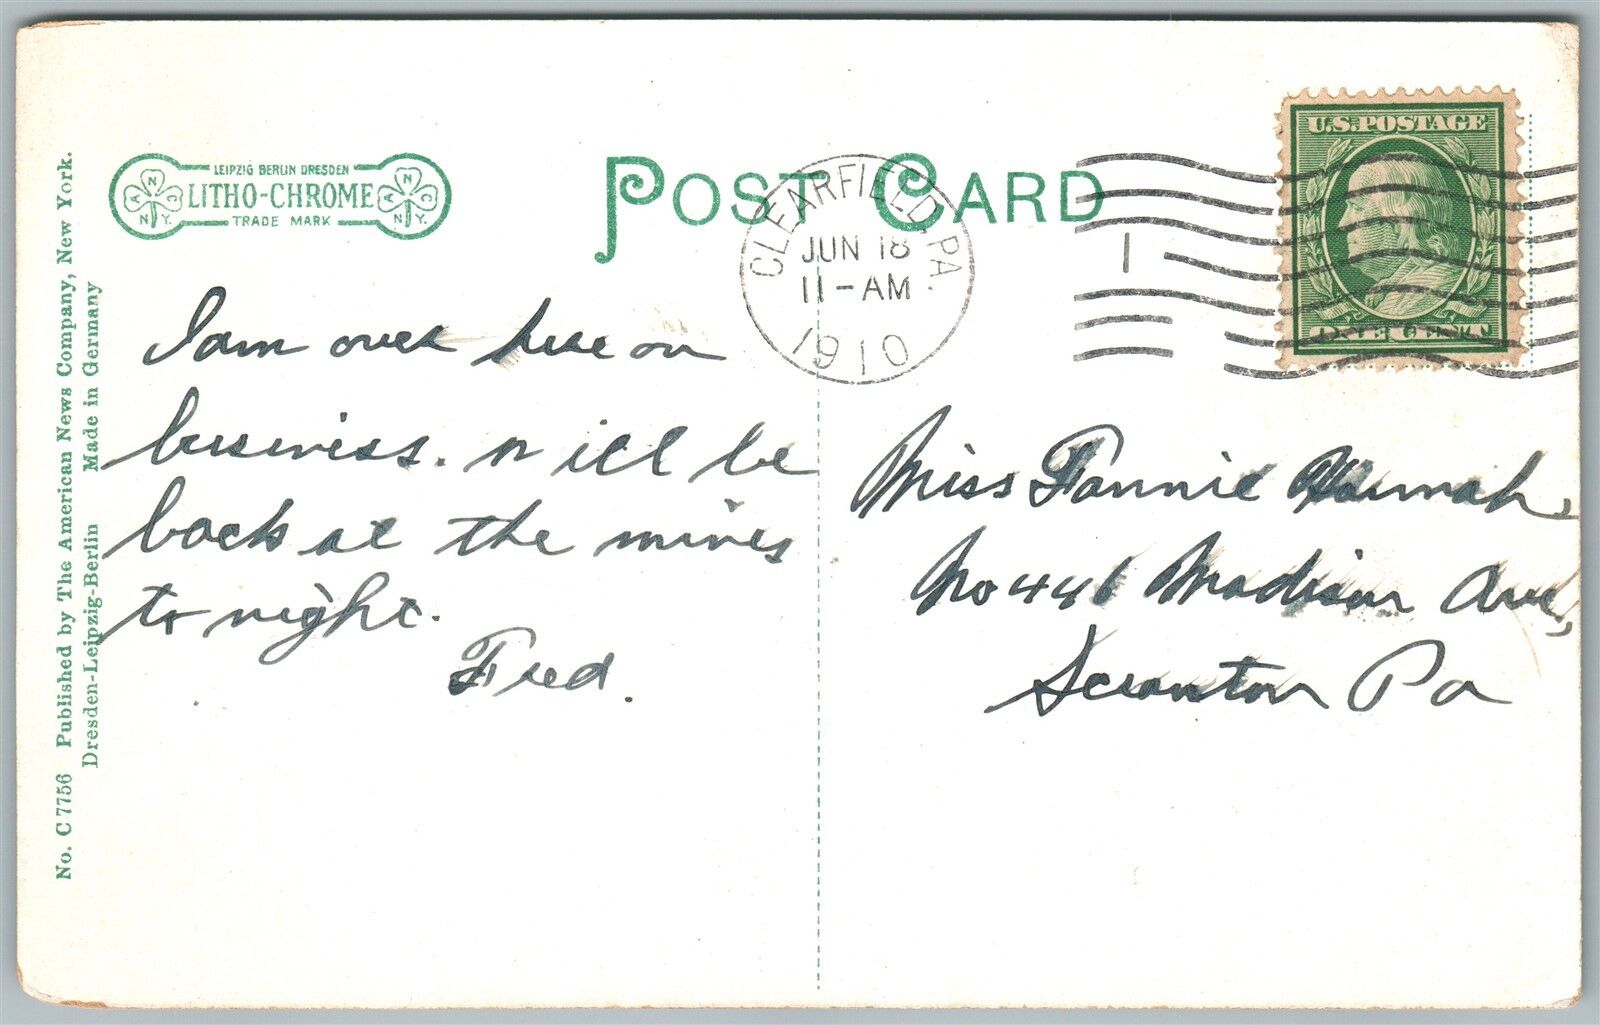 No. C 7756 Published by The American News Company, New York.
Dresden-Leipzig-Berlin Made in Germany
LEIPZIG BERLIN DRESDEN
LITHO-CHROME
TRADE MARK
A N C
N.Y.
A N C
N.Y.
POST CARD
CLEARFIELD, PA.
JUN 18
11-AM
1910
1
U.S. POSTAGE
I am over here on
business. will be
back at the mines
to night.
Fred.
Miss Fannie Hannah,
No 446 Madison Ave,
Scranton Pa